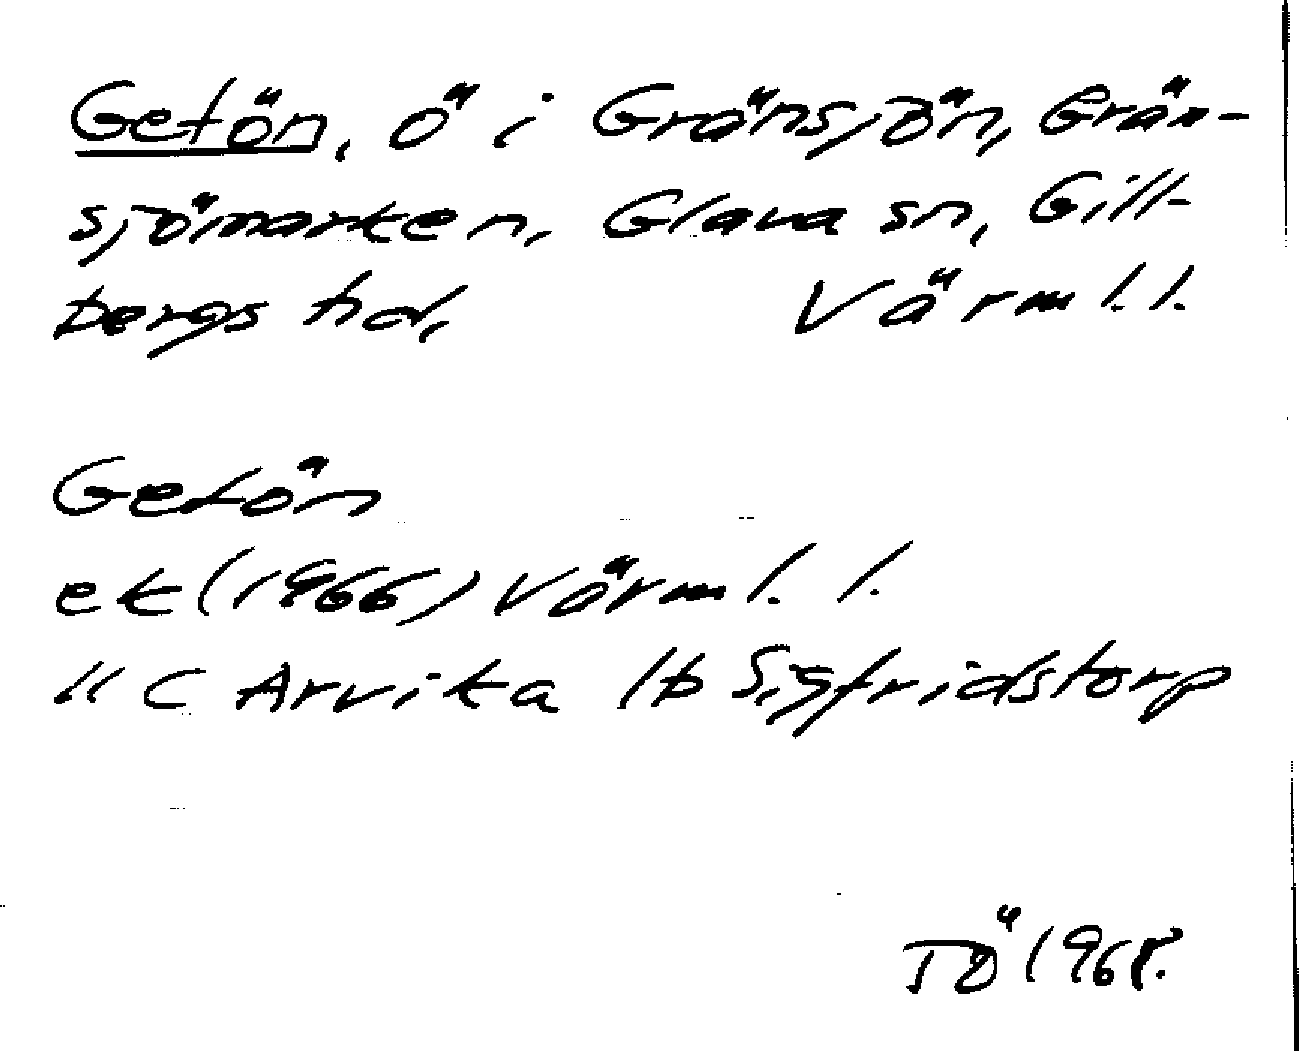 Getön, ö i Gränsjön, Grän-
sjömarken, Glava sn, Gill-
bergs hd, Värml. l.
Getön
ek (1966) Värml. l.
11 C Arvika 1b Sigfridstorp
TÖ 1968.